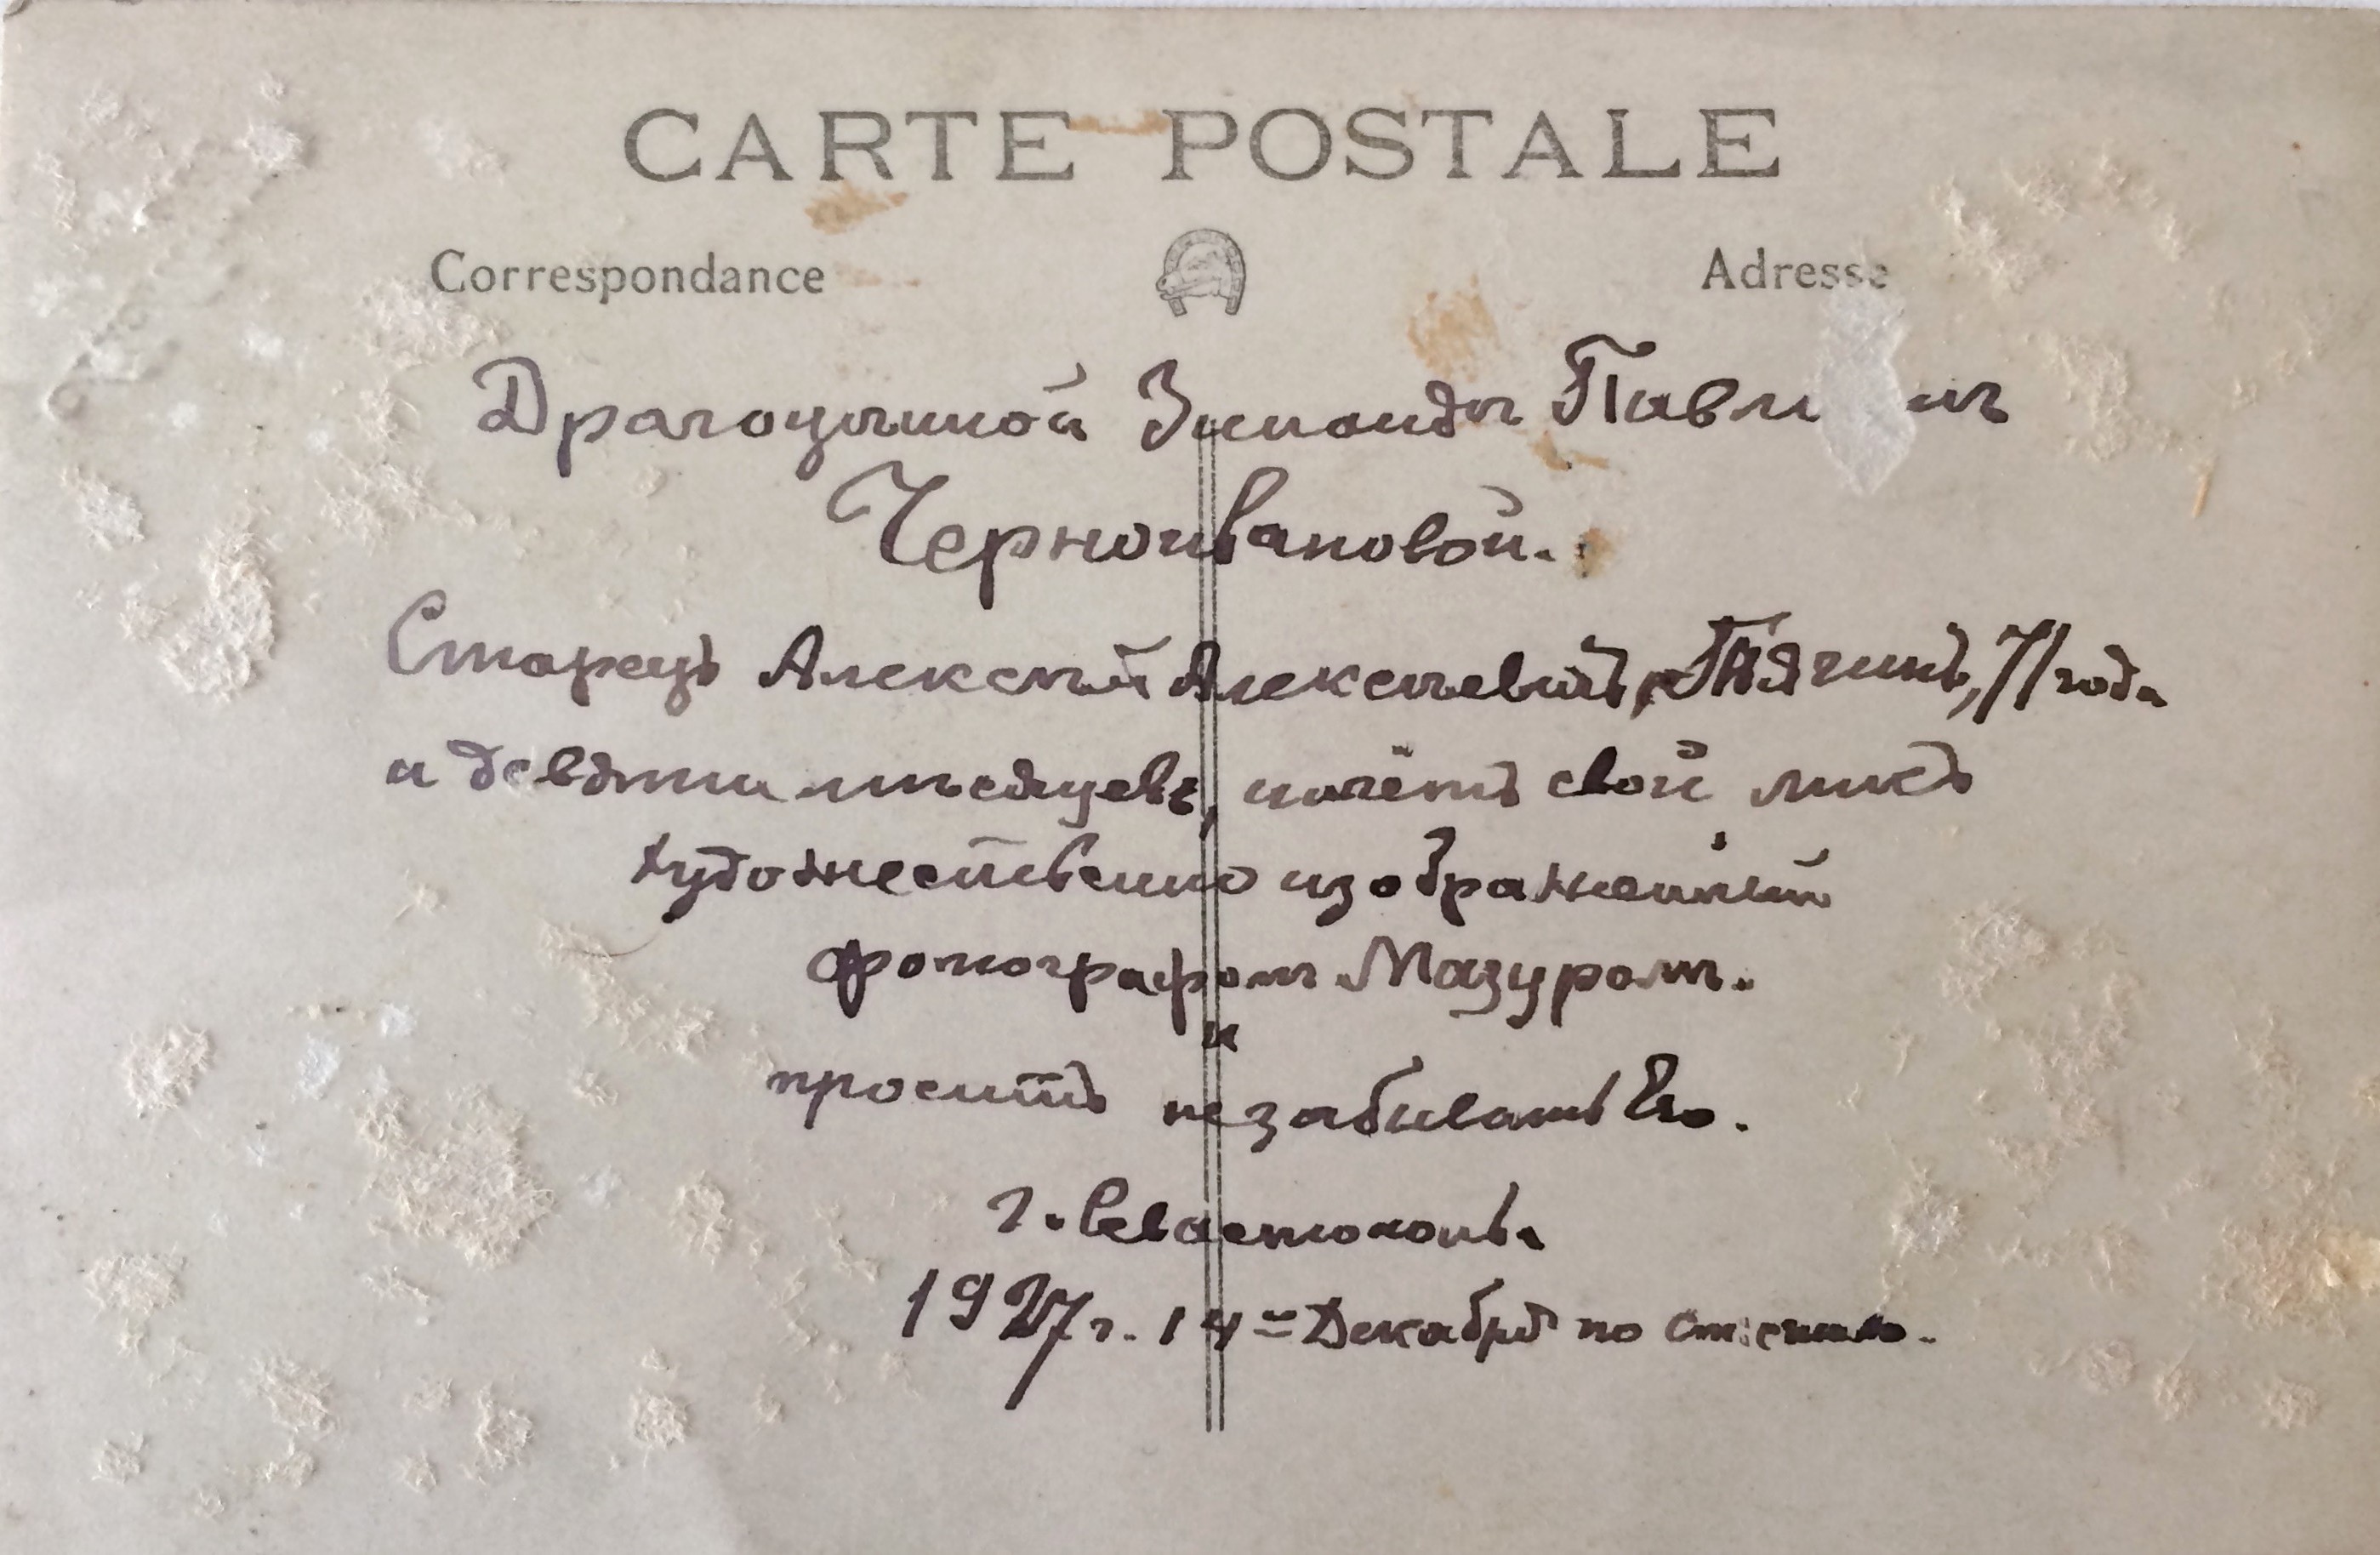 CARTE POSTALE
Correspondance Adresse
Драгоцѣнной Зинаидѣ
Черноивановой.
Старецъ Алексѣй Алексѣевичъ 71 года
и девяти мѣсяцевъ, шлётъ свой ликъ
художественно изображенный
фотографомъ Мазуромъ.
и
проситъ незабывать Его.
г. Севастополь.
1927 г. 14 = Декабря по